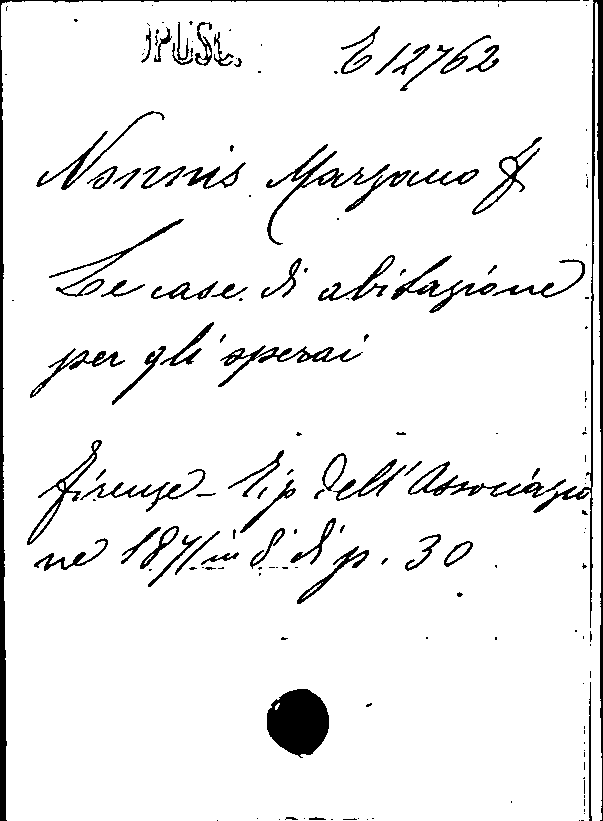 OPUSC. E 12762
Nonnis Marzano F
Le case di abitazione
per gli operai
Firenze - Tip dell'Associazio
ne 1871 in 8° di p. 30